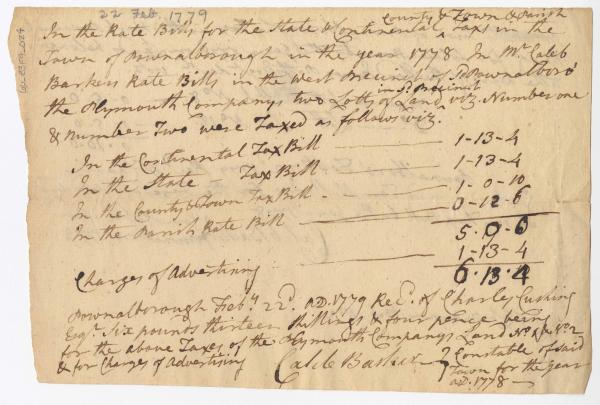 22 Feb 1779
County & Town & Parish
In the Rate Bills for the State & Continental Taxs in the
Town of Pownalborough in the year 1778 In Mr. Caleb
Barkers Rate Bills in the West Precinct of Sd. Pownalboro'
in Sd. Precinct
the Plymouth Companys two Lotts of Land viz. Number one
& Number Two were Taxed as follows viz.
In the Continental Tax Bill 1-13-4
In the State - Tax Bill 1-13-4
In the County & Town Tax Bill - 1-0-10
In the Parish Rate Bill 0-12-6
5.0-6
Charges of Advertising 1-13-4
6.13.4
Pownalborough Feby. 22d. AD. 1779 Recd. of Charles Cushing
Esqr. Six pounds thirteen Shillings & four pence being
for the above Taxes of the Plymouth Companys Land No. 1 & No. 2
& for Charges of Advertising
Caleb Barker } Constable of said
Town for the year
AD. 1778